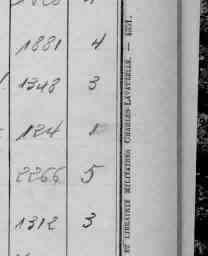 1881 4
1348 3
124 1
2266 5
1312 3
ET LIBRAIRIE MILITAIRES CHARLES-LAVAUZELLE. — 4251.